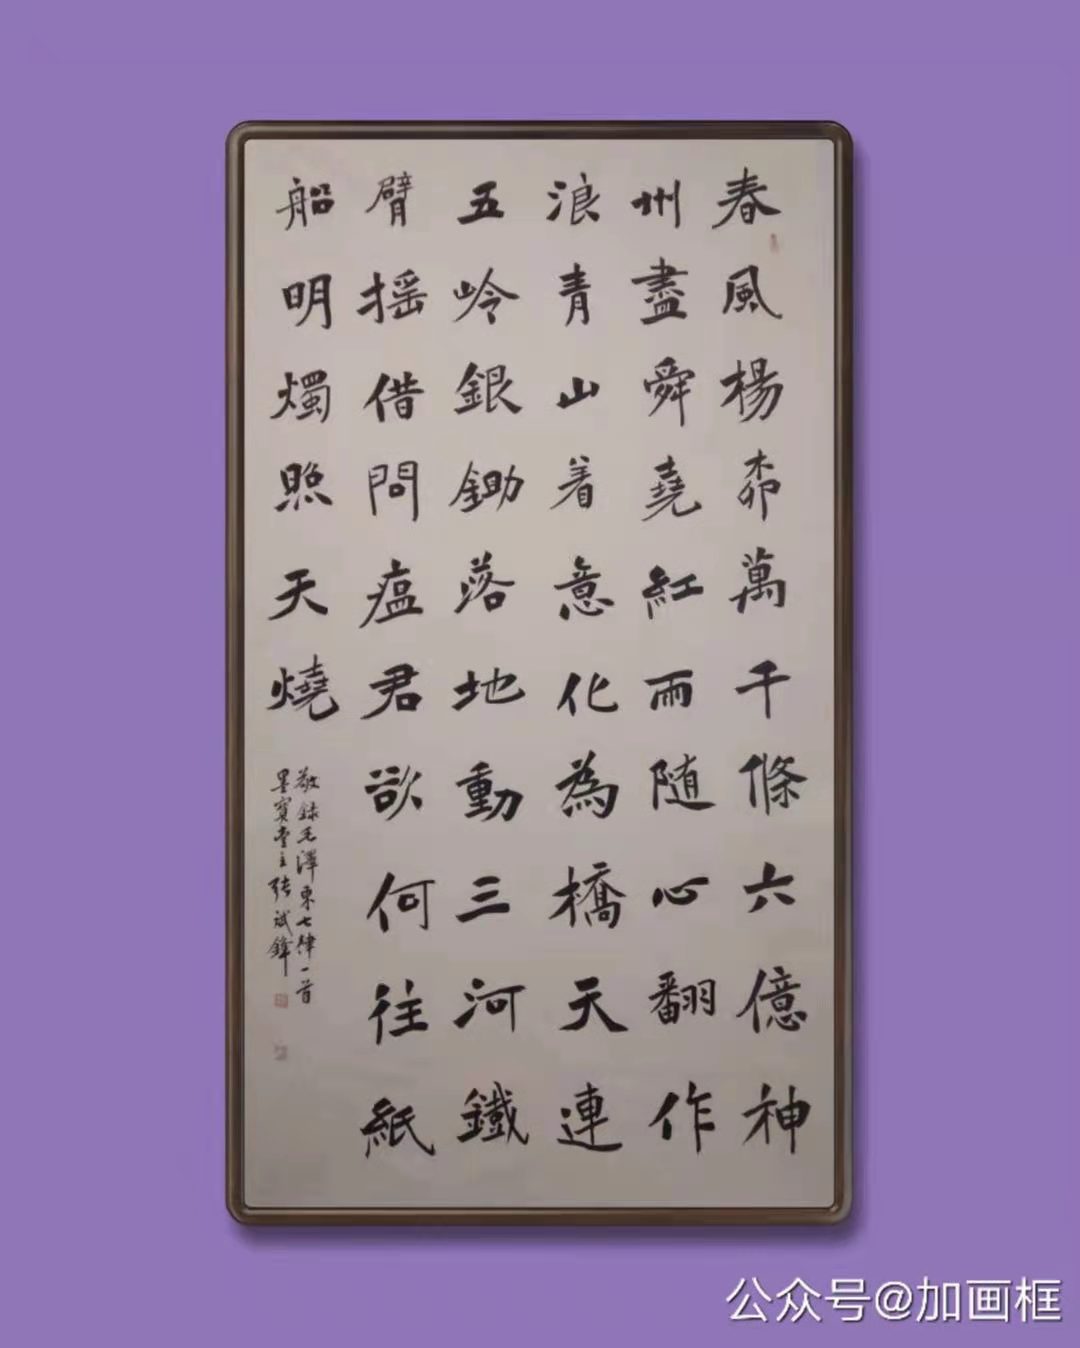 春風楊桺萬千條六億神
州盡舜堯紅雨随心翻作
浪青山着意化為橋天連
五岭銀鋤落地動三河鐵
臂摇借問瘟君欲何往紙
船明燭照天燒
敬録毛澤東七律一首
墨寶堂主張斌鋒
公众号@加画框